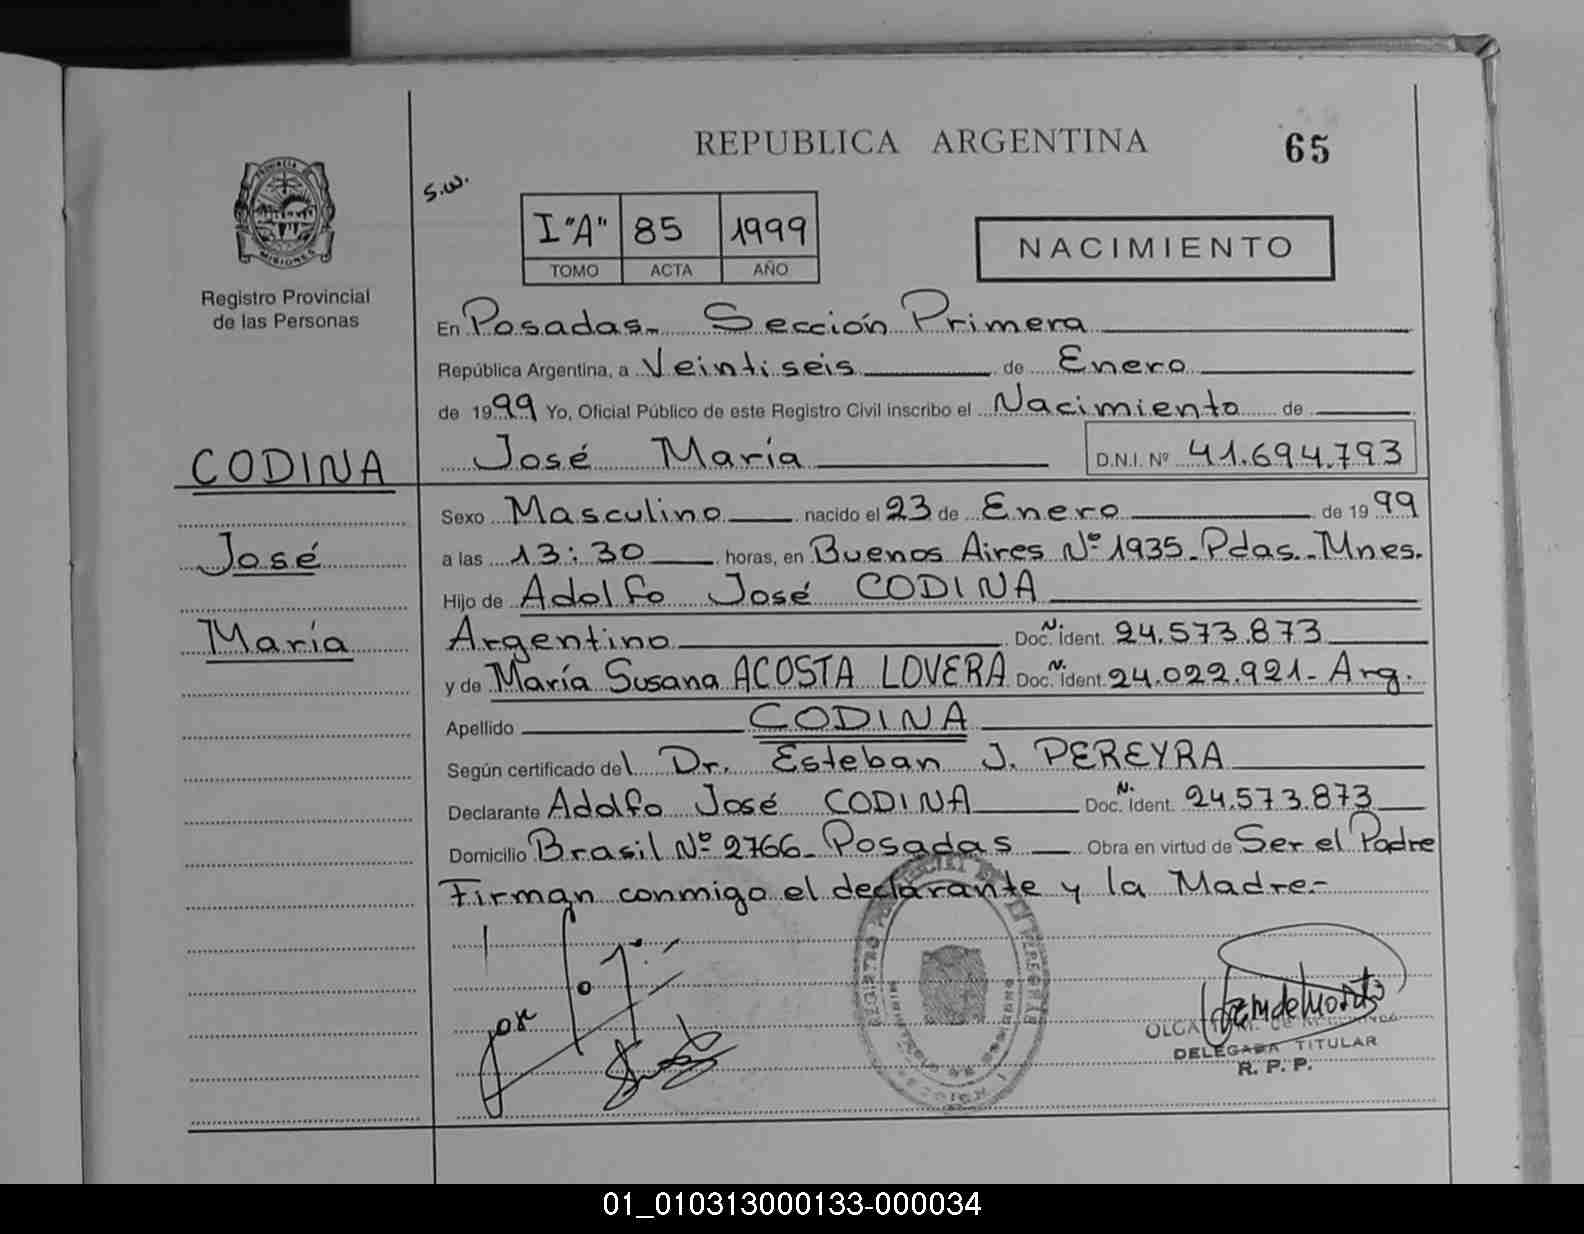 REPUBLICA ARGENTINA
65
PROVINCIA DE
MISIONES
Registro Provincial
de las Personas
s.w.
I "A" 85 1999
TOMO ACTA AÑO
NACIMIENTO
En Posadas- Sección Primera
República Argentina, a Veintiseis de Enero
de 1999 Yo, Oficial Público de este Registro Civil inscribo el Nacimiento de
José María D.N.I. Nº 41.694.793
CODINA
José
María
Sexo Masculino nacido el 23 de Enero de 1999
a las 13:30 horas, en Buenos Aires Nº 1935- Pdas.- Mnes.
Hijo de Adolfo José CODINA
Argentino Doc. N. Ident. 24.573.873
y de María Susana ACOSTA LOVERA Doc. N. Ident. 24.022.921- Arg.
Apellido CODINA
Según certificado del Dr. Esteban J. PEREYRA
Declarante Adolfo José CODINA Doc. N. Ident. 24.573.873
Domicilio Brasil Nº 2766- Posadas Obra en virtud de Ser el Padre
Firman conmigo el declarante y la Madre.-
OLGA
DELEGADA TITULAR
R. P. P.
01_010313000133-000034